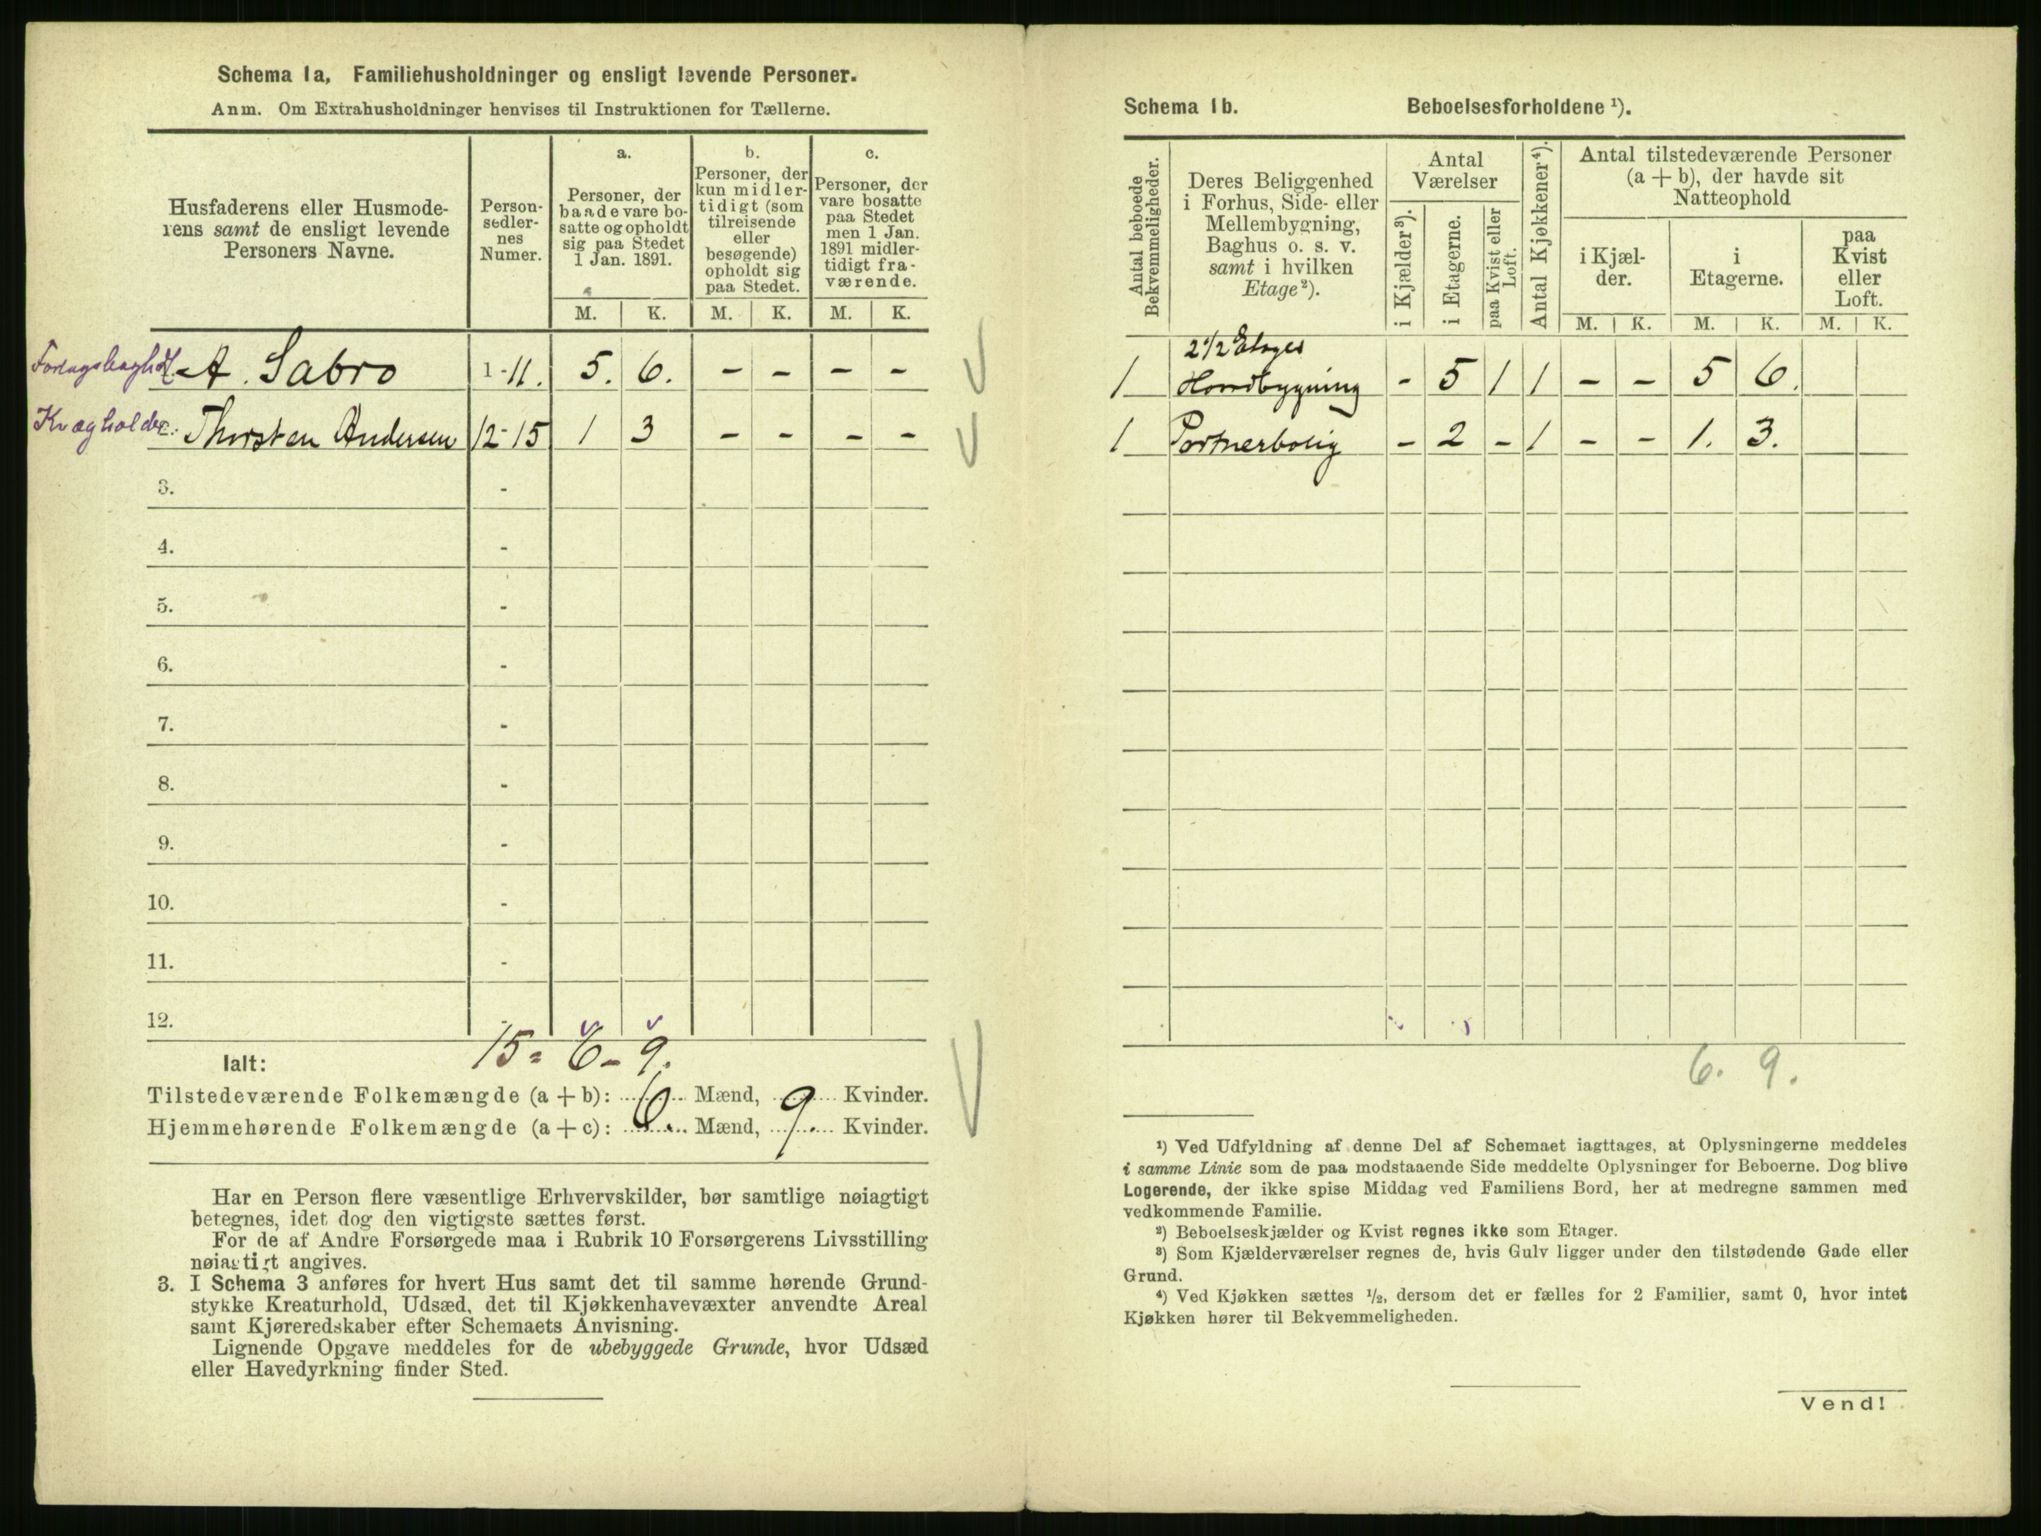 Schema 1a, Familiehusholdninger og ensligt levende Personer.
Anm. Om Extrahusholdninger henvises til Instruktionen for Tællerne.
Husfaderens eller Husmode-
rens samt de ensligt levende
Personers Navne.
Person-
sedler-
nes
Numer.
a.
Personer, der
baade vare bo-
satte og opholdt
sig paa Stedet
1 Jan. 1891.
b.
Personer, der
kun midler-
tidigt (som
tilreisende
eller
besøgende)
opholdt sig
paa Stedet.
c.
Personer, der
vare bosatte
paa Stedet
men 1 Jan.
1891 midler-
tidigt fra-
værende.
M. K. M. K. M. K.
A. Sabro 1-11. 5. 6. - - - -
Kvægholder Thorsten Andersen 12-15 1 3 - - - -
3. -
4. -
5. -
6. -
7. -
8. -
9. -
10. -
11. -
12. -
Ialt: 15 = 6 - 9.
Tilstedeværende Folkemængde (a + b): 6 Mænd, 9 Kvinder.
Hjemmehørende Folkemængde (a + c): 6. Mænd, 9. Kvinder.
Har en Person flere væsentlige Erhvervskilder, bør samtlige nøiagtigt
betegnes, idet dog den vigtigste sættes først.
For de af Andre Forsørgede maa i Rubrik 10 Forsørgerens Livsstilling
nøiagtigt angives.
3. I Schema 3 anføres for hvert Hus samt det til samme hørende Grund-
stykke Kreaturhold, Udsæd, det til Kjøkkenhavevæxter anvendte Areal
samt Kjøreredskaber efter Schemaets Anvisning.
Lignende Opgave meddeles for de ubebyggede Grunde, hvor Udsæd
eller Havedyrkning finder Sted.
Schema 1b. Beboelsesforholdene ¹).
Antal beboede
Bekvemmeligheder.
Deres Beliggenhed
i Forhus, Side- eller
Mellembygning,
Baghus o. s. v.
samt i hvilken
Etage²).
Antal
Værelser
i Kjælder³).
i Etagerne.
paa Kvist eller
Loft.
Antal Kjøkkener⁴).
Antal tilstedeværende Personer
(a + b), der havde sit
Natteophold
i Kjæl-
der.
i
Etagerne.
paa
Kvist
eller
Loft.
M. K. M. K. M. K.
2 1/2 Etages
1 Hovedbygning - 5 1 1 - - 5 6.
1 Portnerbolig - 2 - 1 - - 1. 3.
6. 9.
¹) Ved Udfyldning af denne Del af Schemaet iagttages, at Oplysningerne meddeles
i samme Linie som de paa modstaaende Side meddelte Oplysninger for Beboerne. Dog blive
Logerende, der ikke spise Middag ved Familiens Bord, her at medregne sammen med
vedkommende Familie.
²) Beboelseskjælder og Kvist regnes ikke som Etager.
³) Som Kjælderværelser regnes de, hvis Gulv ligger under den tilstødende Gade eller
Grund.
⁴) Ved Kjøkken sættes ½, dersom det er fælles for 2 Familier, samt 0, hvor intet
Kjøkken hører til Bekvemmeligheden.
Vend!